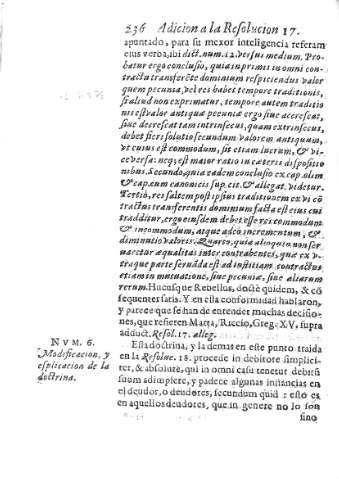 236 Adicion a la Resolucion 17.
apuntado, para su mexor inteligencia referam
eius verba, ibi dict. num. 12. versus medium. Pro-
batur ergo conclusio, quia in primis in omni con-
tractu transferẽte dominium respiciendus valor
quem pecunia, vel res habet tempore traditionis,
si aliud non exprimatur, tempore autem traditio
nis est valor antiquæ pecuniæ ergo siue accrescat,
siue decrescat tam intrinsecus, quam extrinsecus,
debet fieri solutio secundum valorem antiquum,
vt cuius est commodum, sit etiam lucrum, & vi-
ce versa: neq; est maior ratio in cæteris dispositio
nibus. Secundo, quia eadem conclusio ex cap. olim
& cap. cum canonicis sup. cit. & allegat. videtur.
Tertio, res saltem post ipsius traditionem ex vi cõ
tractus transferentis dominium facta est eius cui
tradditur, ergo eiusdem debet esse rei commodum
& incommodum, atque adeo incrementum, &
diminutio valoris. Quarto, quia alioquin non ser
uaretur æqualitas inter contrahentes, quæ ex v-
traque parte seruãda est ad iustitiam contractus
etiam in mutuatione, siue pecuniæ, siue aliarum
rerum. Hucusque Rebellus, doctè quidem, & cõ
sequenter satis. Y en esta conformidad hablaron,
y parece que se han de entender muchas decisio-
nes, que refieren Marta, Riccio, Greg. XV, supra
adduct. Resol. 17. alleg.
NVM. 6.
Modificacion, y
esplicacion de la
doctrina.
Esta doctrina, y la demas en este punto traida
en la Resolue. 18. procede in debitore simplici-
ter, & absolutè, qui in omni casu tenetur debitũ
suum adimplere, y padece algunas instancias en
el deudor, o deudores, secundum quid: esto es
en aquellos deudores, que in genere no lo son
sino